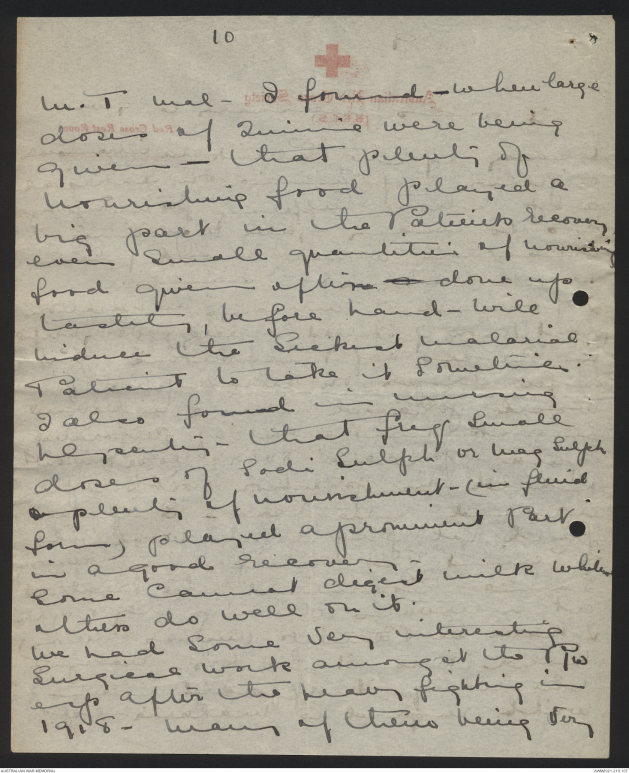 10
M.T. Mal - I found - when large
doses of Quinine were being
given - that plenty of
nourishing food played a
big part in the Patients recovery
even small quantities of nourishing
food given often done up
tastely, before hand - will
induce the Sickest malarial
Patient to take it sometimes.
I also found in nursing
Dysentry - that freq small
doses of Sodi Sulph or Mag Sulph
plenty of nourishment - (in fluid
form) played a prominent Part
in a good recovery -
some cannot digest milk while
others do well on it.
We had some very interesting
Surgical work amongst the P/W
esp after the heavy fighting in
1918 - many of theirs being very
AUSTRALIAN WAR MEMORIAL